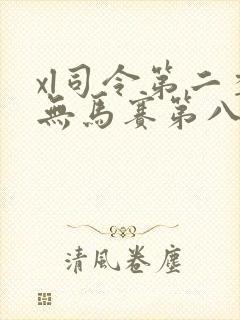 xl司令第二
無馬賽第八
清風卷塵